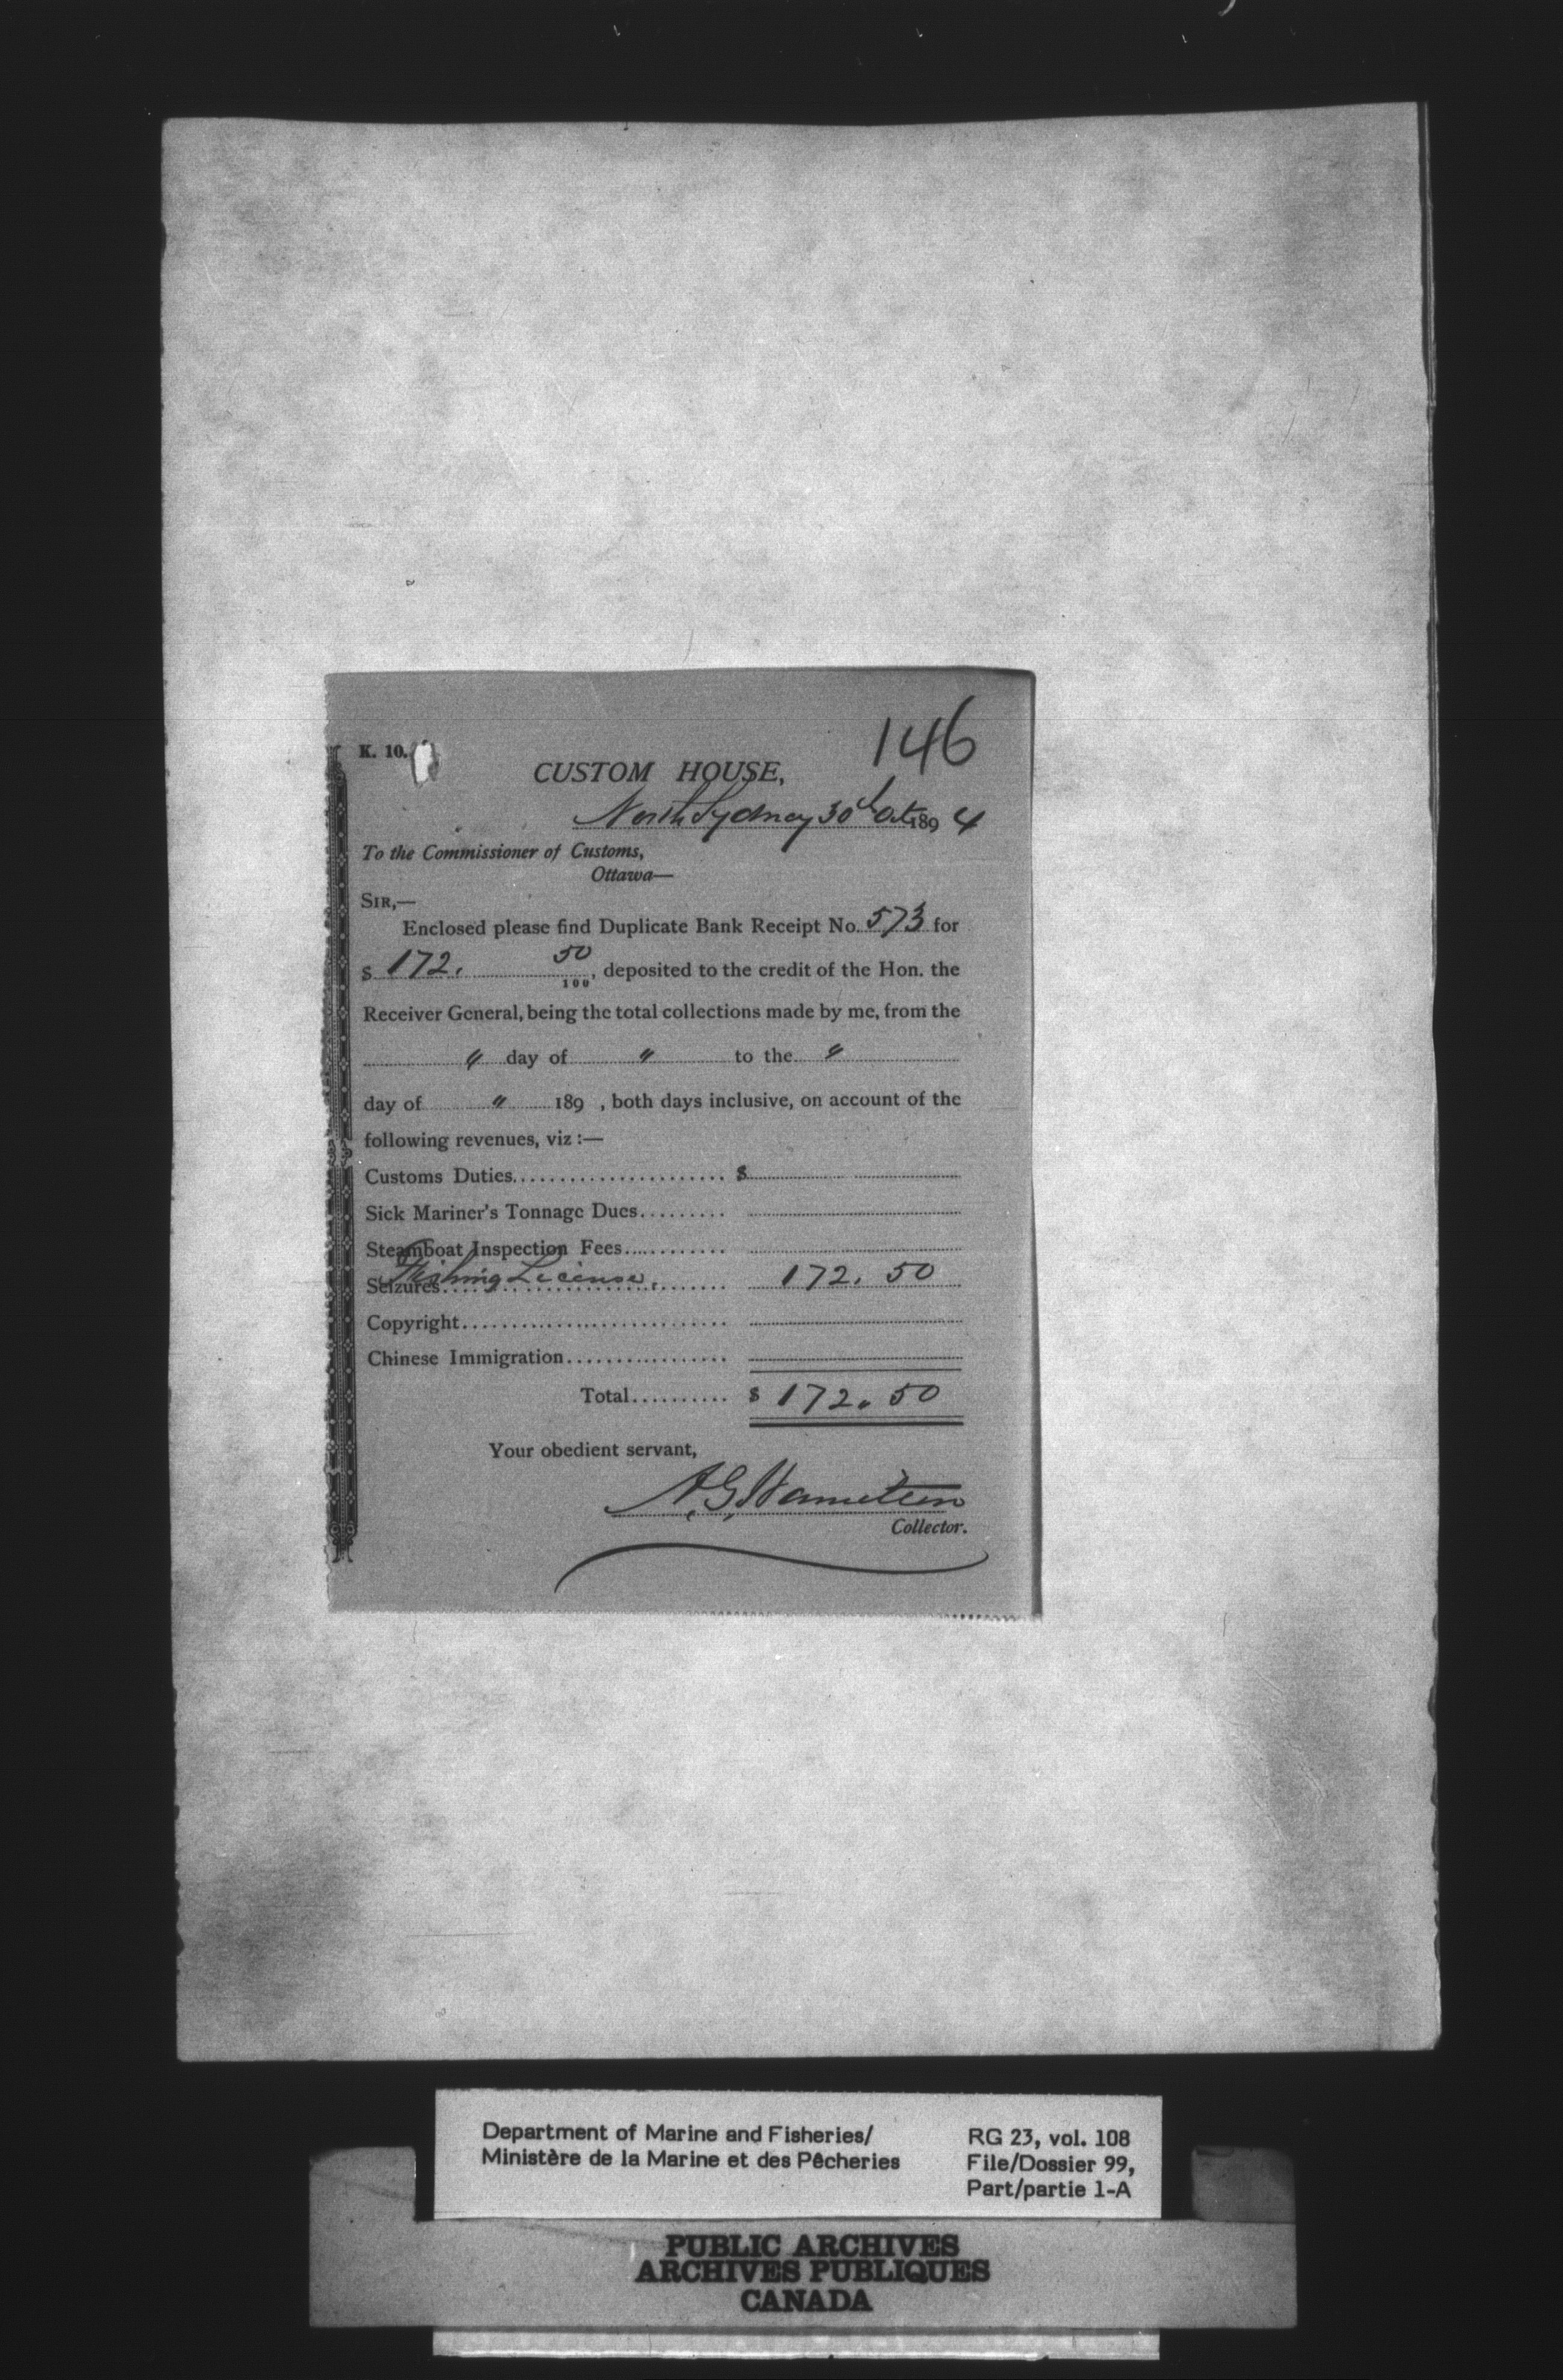 146
K. 10.
CUSTOM HOUSE,
North Sydney 30th Oct 1894
To the Commissioner of Customs,
Ottawa—
SIR,—
Enclosed please find Duplicate Bank Receipt No. 573 for
$ 172. 50/100, deposited to the credit of the Hon. the
Receiver General, being the total collections made by me, from the
" day of " to the "
day of " 189 , both days inclusive, on account of the
following revenues, viz :—
Customs Duties...................... $
Sick Mariner's Tonnage Dues.........
Steamboat Inspection Fees...........
Fishing License,
Seizures.............................. 172. 50
Copyright............................
Chinese Immigration.................
Total.......... $ 172. 50
Your obedient servant,
A. G. Hamilton
Collector.
Department of Marine and Fisheries/
Ministère de la Marine et des Pêcheries
RG 23, vol. 108
File/Dossier 99,
Part/partie 1-A
PUBLIC ARCHIVES
ARCHIVES PUBLIQUES
CANADA